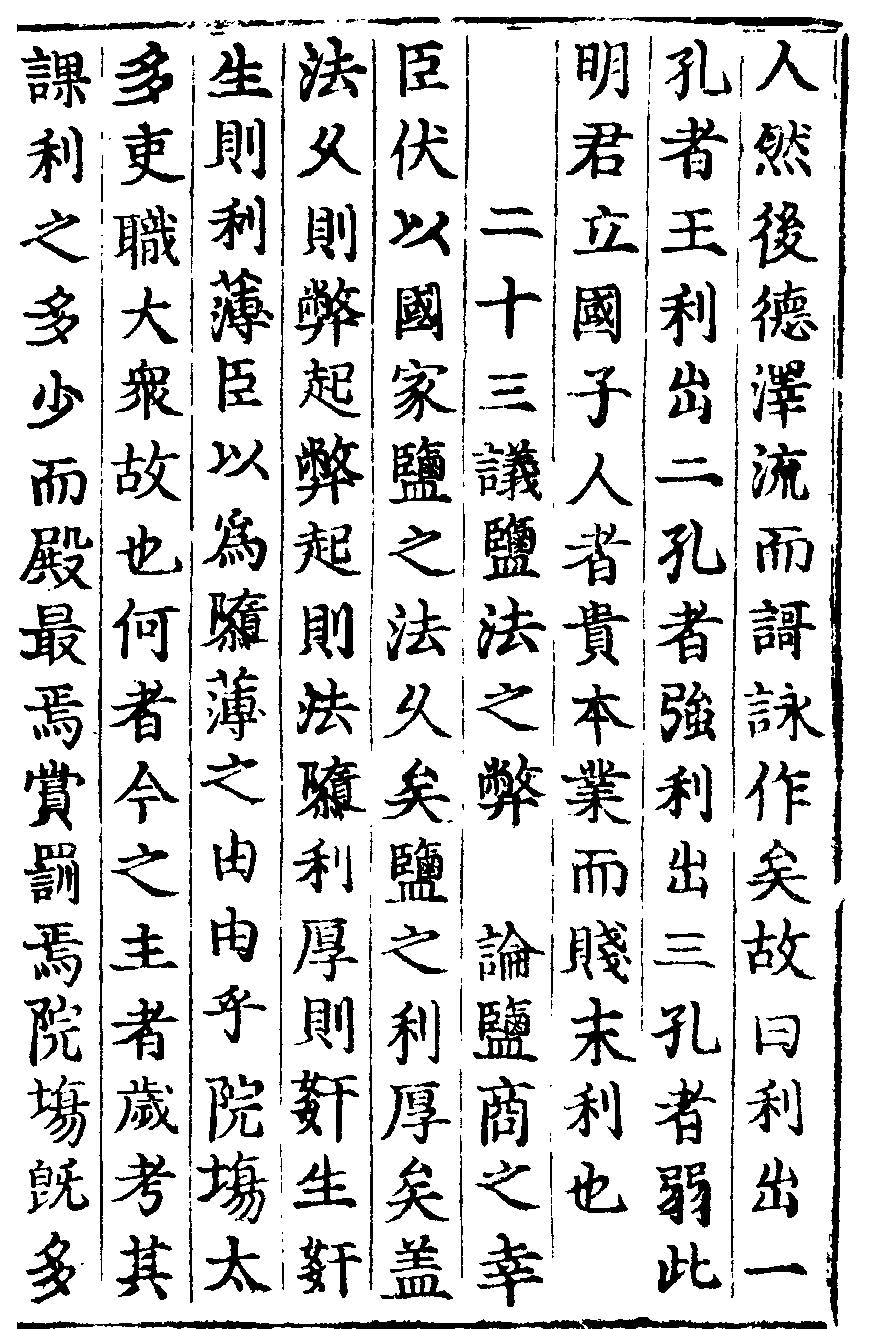 人然後德澤流而謌詠作矣故曰利出一
孔者王利出二孔者強利出三孔者弱此
明君立國子人者貴本業而賤末利也
二十三議鹽法之弊　論鹽商之幸
臣伏以國家鹽之法久矣鹽之利厚矣盖
法久則弊起弊起則法隳利厚則姧生姧
生則利薄臣以爲隳薄之由由乎院塲太
多吏職大衆故也何者今之主者歲考其
課利之多少而殿最焉賞罰焉院塲旣多